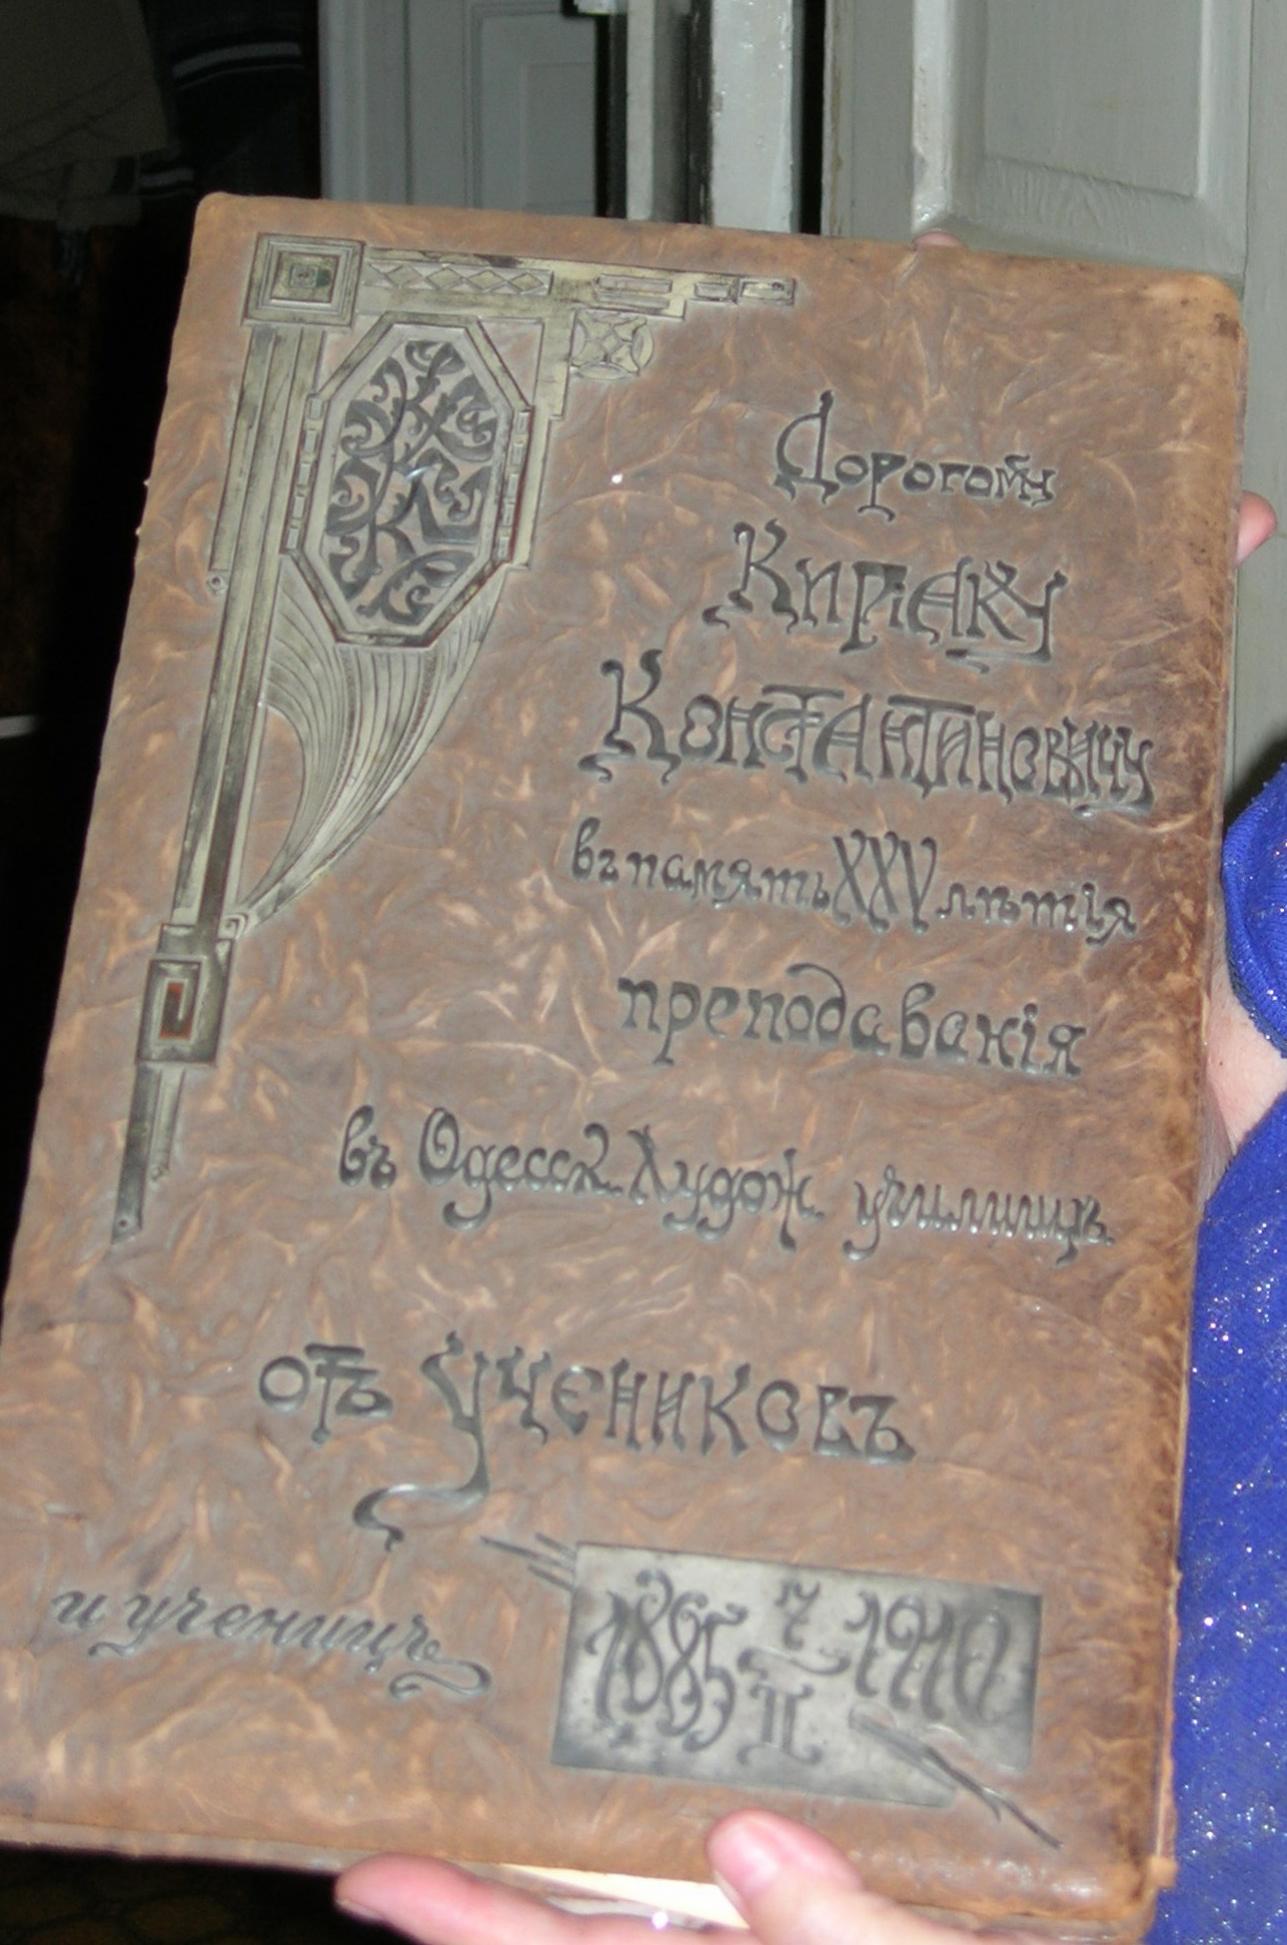 Дорогому
Киріаку
Константиновичу
въ память XXV лѣтія
преподаванія
въ Одесск. Худож. училищѣ.
отъ учениковъ
и ученицъ
1885 17/II 1910